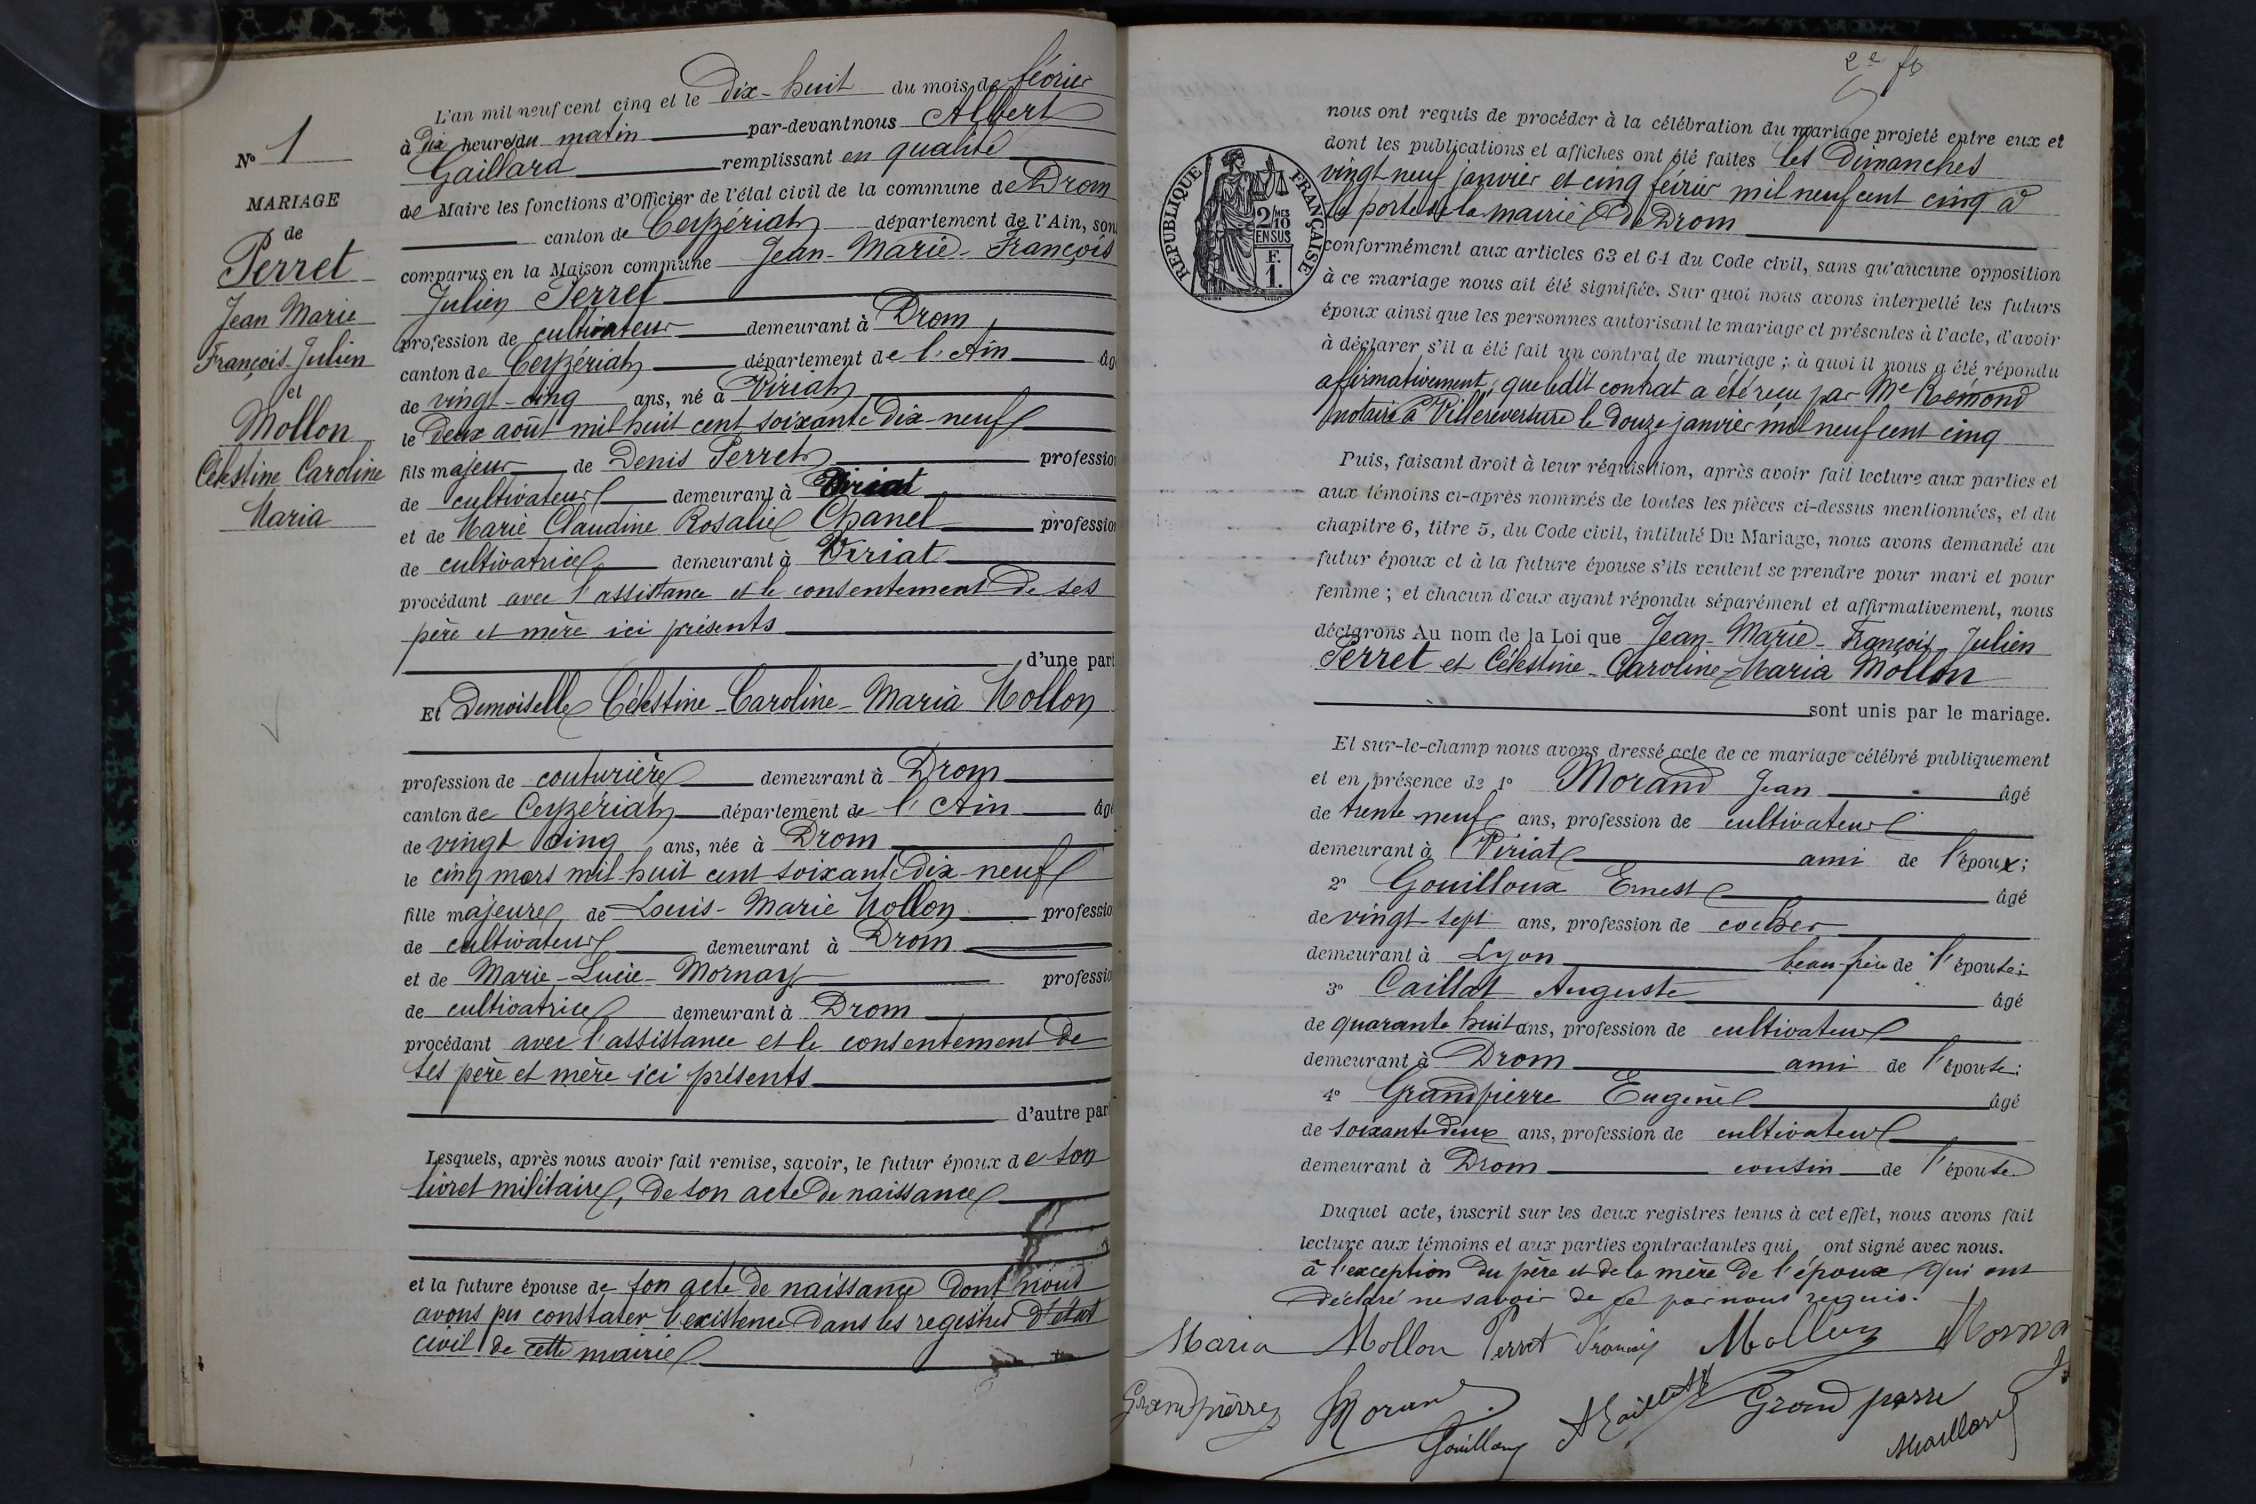 L'an mil neuf cent cinq et le Dix-huit du mois de février
à Dix heures du matin par-devant nous Albert
Gaillard remplissant en qualité
de Maire les fonctions d'Officier de l'état civil de la commune de Drom
canton de Ceyzériat département de l'Ain, son
comparus en la Maison commune Jean-Marie-François
Julien Perret
profession de cultivateur demeurant à Drom
canton de Ceyzériat département de l'Ain âg
de vingt-cinq ans, né à Viriat
le Deux août mil huit cent soixante Dix-neuf
fils majeur de Denis Perret profession
de cultivateur demeurant à Viriat
et de Marie Claudine Rosalie Chanel profession
de cultivatrice demeurant à Viriat
procédant avec l'assistance et le consentement de ses
père et mère ici présents
d'une part
Et Demoiselle Célestine-Caroline-Maria Mollon
profession de couturière demeurant à Drom
canton de Ceyzériat département de l'Ain âgé
de vingt cinq ans, née à Drom
le cinq mars mil huit cent soixante Dix-neuf
fille majeure de Louis-Marie Mollon professio
de cultivateur demeurant à Drom
et de Marie-Lucie-Mornay professio
de cultivatrice demeurant à Drom
procédant avec l'assistance et le consentement de
ses père et mère ici présents
d'autre par
Lesquels, après nous avoir fait remise, savoir, le futur époux de son
livret militaire, de son acte de naissance
et la future épouse de son acte de naissance dont nous
avons pu constater l'existence dans les registres d'état
civil de cette mairie
N° 1
MARIAGE
de
Perret
Jean Marie
François-Julien
et
Mollon
Célestine Caroline
Maria
2e
nous ont requis de procéder à la célébration du mariage projeté entre eux et
dont les publications et affiches ont été faites les Dimanches
vingt neuf janvier et cinq février mil neuf cent cinq à
la porte de la mairie de Drom
conformément aux articles 63 et 64 du Code civil, sans qu'aucune opposition
à ce mariage nous ait été signifiée. Sur quoi nous avons interpellé les futurs
époux ainsi que les personnes autorisant le mariage et présentes à l'acte, d'avoir
à déclarer s'il a été fait un contrat de mariage ; à quoi il nous a été répondu
affirmativement ; que ledit contrat a été reçu par Me Rémond
notaire à Villereversure le Douze janvier mil neuf cent cinq
Puis, faisant droit à leur réquisition, après avoir fait lecture aux parties et
aux témoins ci-après nommés de toutes les pièces ci-dessus mentionnées, et du
chapitre 6, titre 5, du Code civil, intitulé Du Mariage, nous avons demandé au
futur époux et à la future épouse s'ils veulent se prendre pour mari et pour
femme ; et chacun d'eux ayant répondu séparément et affirmativement, nous
déclarons Au nom de la Loi que Jean-Marie-François Julien
Perret et Célestine-Caroline-Maria Mollon
sont unis par le mariage.
Et sur-le-champ nous avons dressé acte de ce mariage célébré publiquement
et en présence de 1° Morand Jean âgé
de trente neuf ans, profession de cultivateur
demeurant à Viriat ami de l'époux ;
2° Gouilloux Ernest âgé
de vingt-sept ans, profession de cocher
demeurant à Lyon beau-frère de l'épouse ;
3° Caillat Auguste âgé
de quarante huit ans, profession de cultivateur
demeurant à Drom ami de l'épouse ;
4° Grandpierre Eugène âgé
de soixante deux ans, profession de cultivateur
demeurant à Drom cousin de l'épouse
Duquel acte, inscrit sur les deux registres tenus à cet effet, nous avons fait
lecture aux témoins et aux parties contractantes qui ont signé avec nous.
à l'exception du père et de la mère de l'époux qui ont
déclaré ne savoir de ce par nous requis.
Maria Mollon Perret François Mollon Morna
Grandpierre Morand Gouilloux
RÉPUBLIQUE FRANÇAISE
2/10 MES
EN SUS
F.
1.